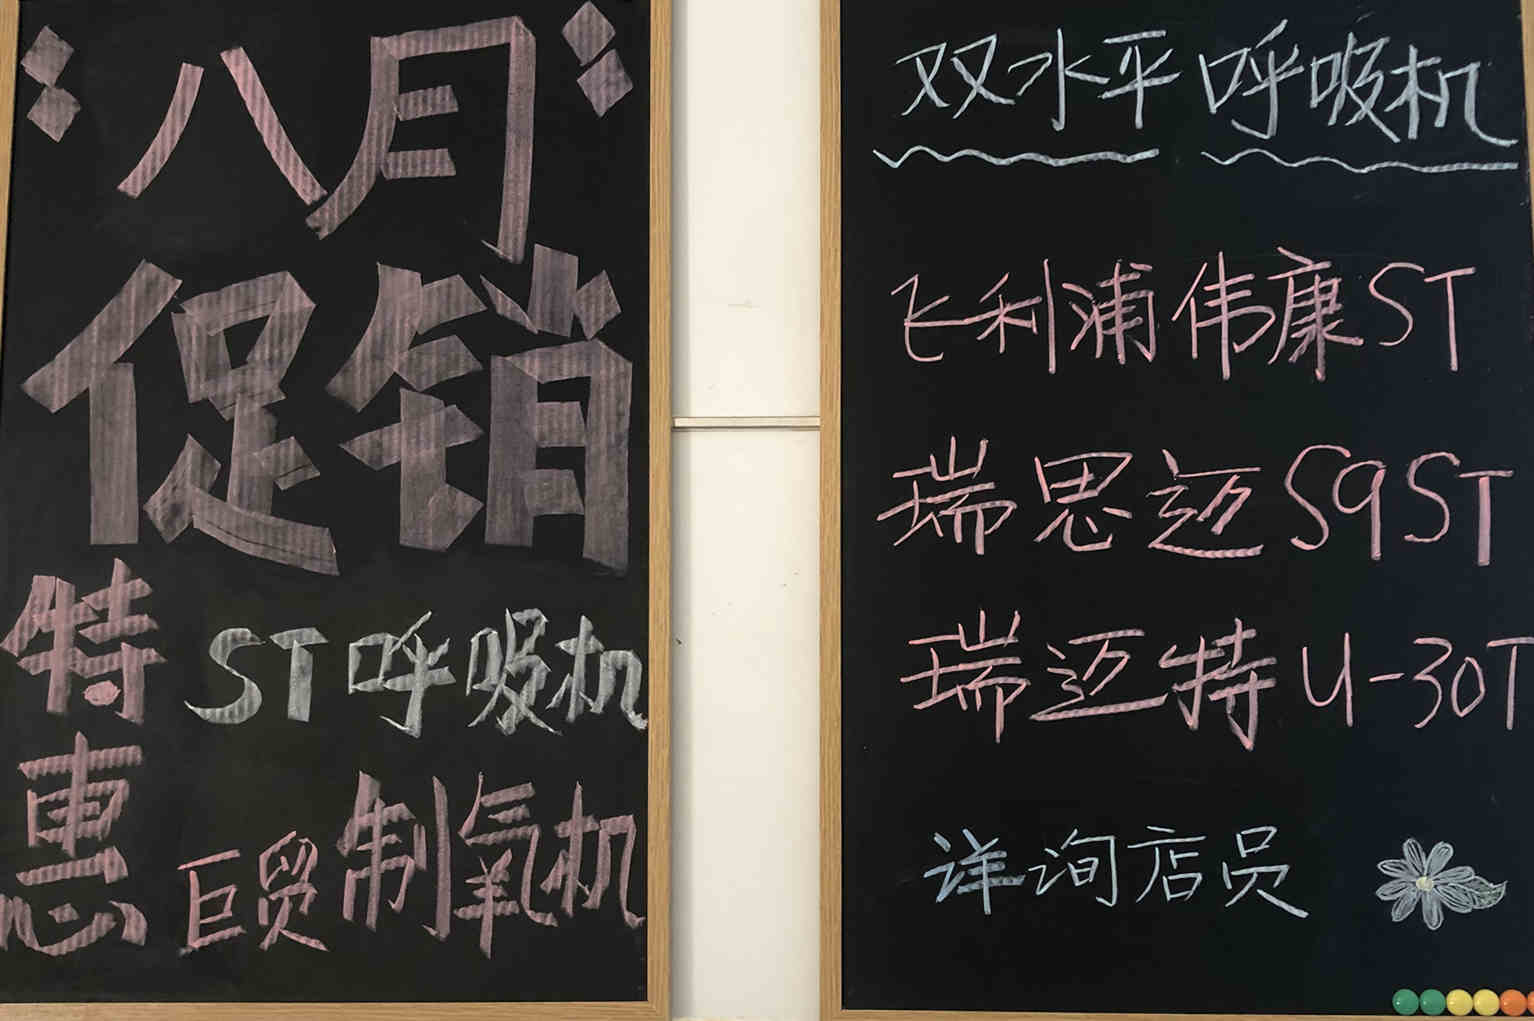 八月
促销
特惠
ST呼吸机
巨贸制氧机
双水平呼吸机
飞利浦伟康ST
瑞思迈S9ST
瑞迈特U-30T
详询店员